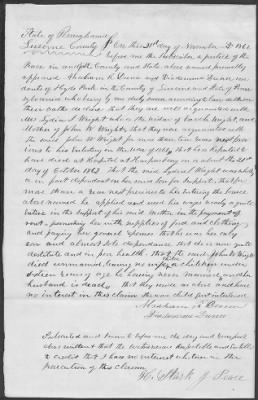 State of Pennsylvania
Luzerne County } On this 31st day of November AD 1863
before me the Subscriber a justice of the
Peace in and for the County and State above named personally
appeared Abraham R. Dunn and Fredrick Dunn resi-
dents of Hyde Park in the County of Luzerne and State of Penn-
sylvania who being by me duly sworn according to law
their oaths do state that they are well acquainted with
Mrs Lydia Wright who is the widow of Wright, and
Mother of John W. Wright, that they were acquainted with
the said John W Wright for
to his Enlisting in the War of 1861, that he is reported to
have died at Hospital at on about the 21st
day of October 1863 That the said Lydia Wright was wholly
or in part dependent on her said son for Support, that for
more than a year next previous to his entering the service
above named he applied and used his wages nearly a quarter
entire in the support of his said mother in the payment of
rent, providing her with supplies of food and clothing,
and paying her general expenses that he was her only
son and almost sole dependence that she is now quite
destitute and in poor health, that the said John W. Wright
died unmarried, leaving no wife or children under
sixteen years of age he having never married and her
husband is dead. that they reside as above and have
no interest in this claim
Abraham R Dunn
Fredrick Dunn
Subscribed and sworn to before me the day and year first
above written and that the witnesses are respectable and entitled
to credit that I have no interest whatever in the
prosecution of this claim
Stark J Peace